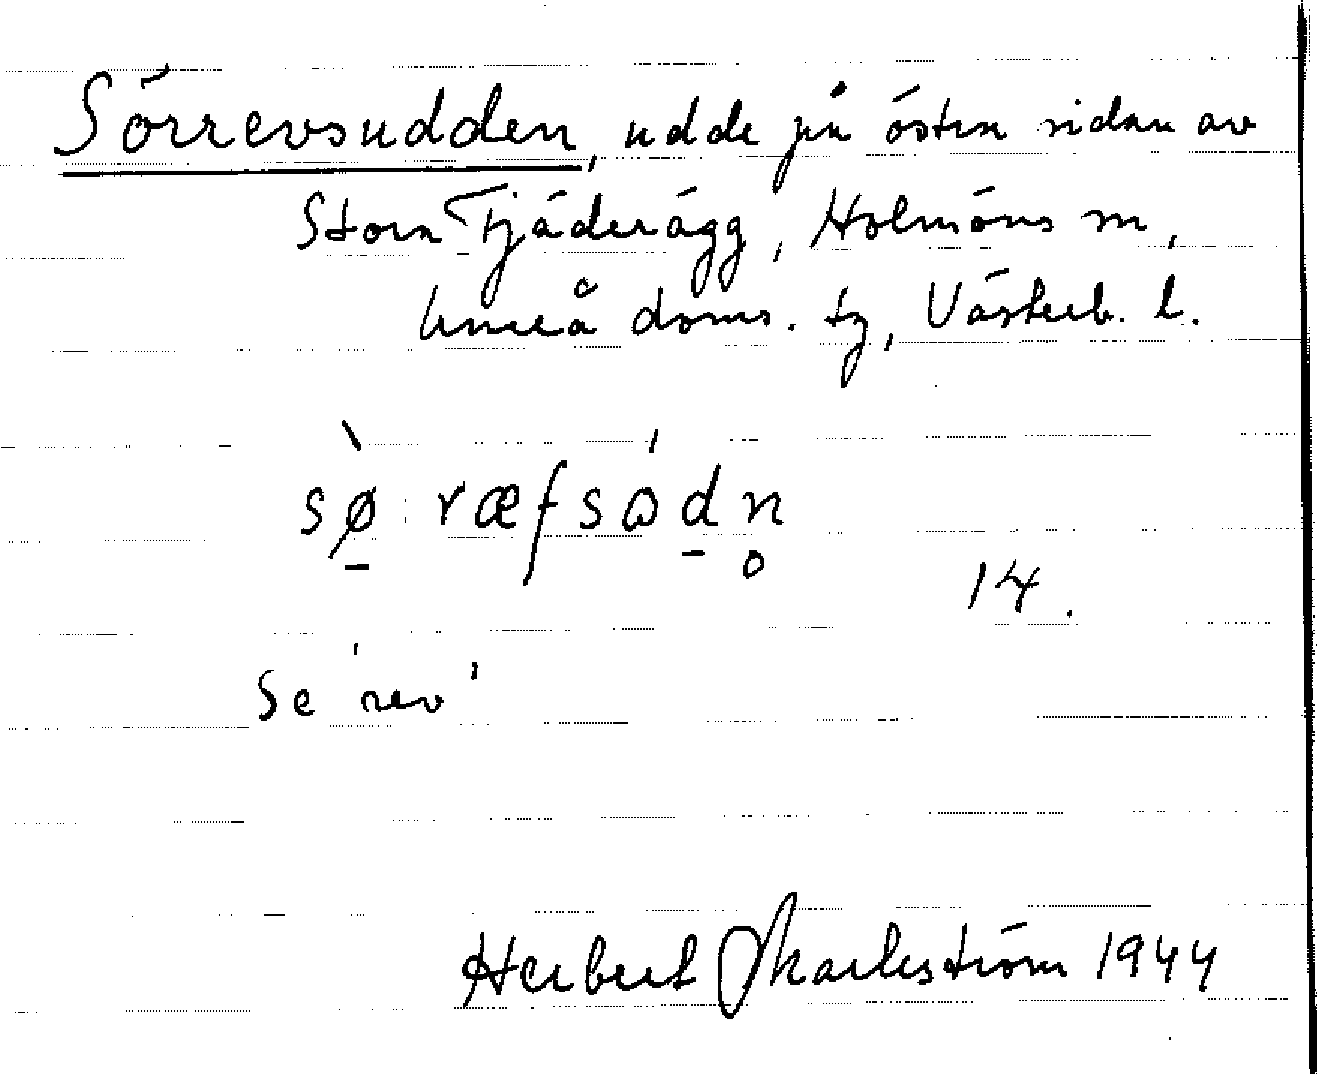 Sörrevsudden, udde på östra sidan av
Stora Fjäderägg, Holmöns sn,
Umeå doms. tg, Västerb. l.
sø̠:ræfsɷd̠n̥
14.
Se 'rev'
Herbert Markström 1944